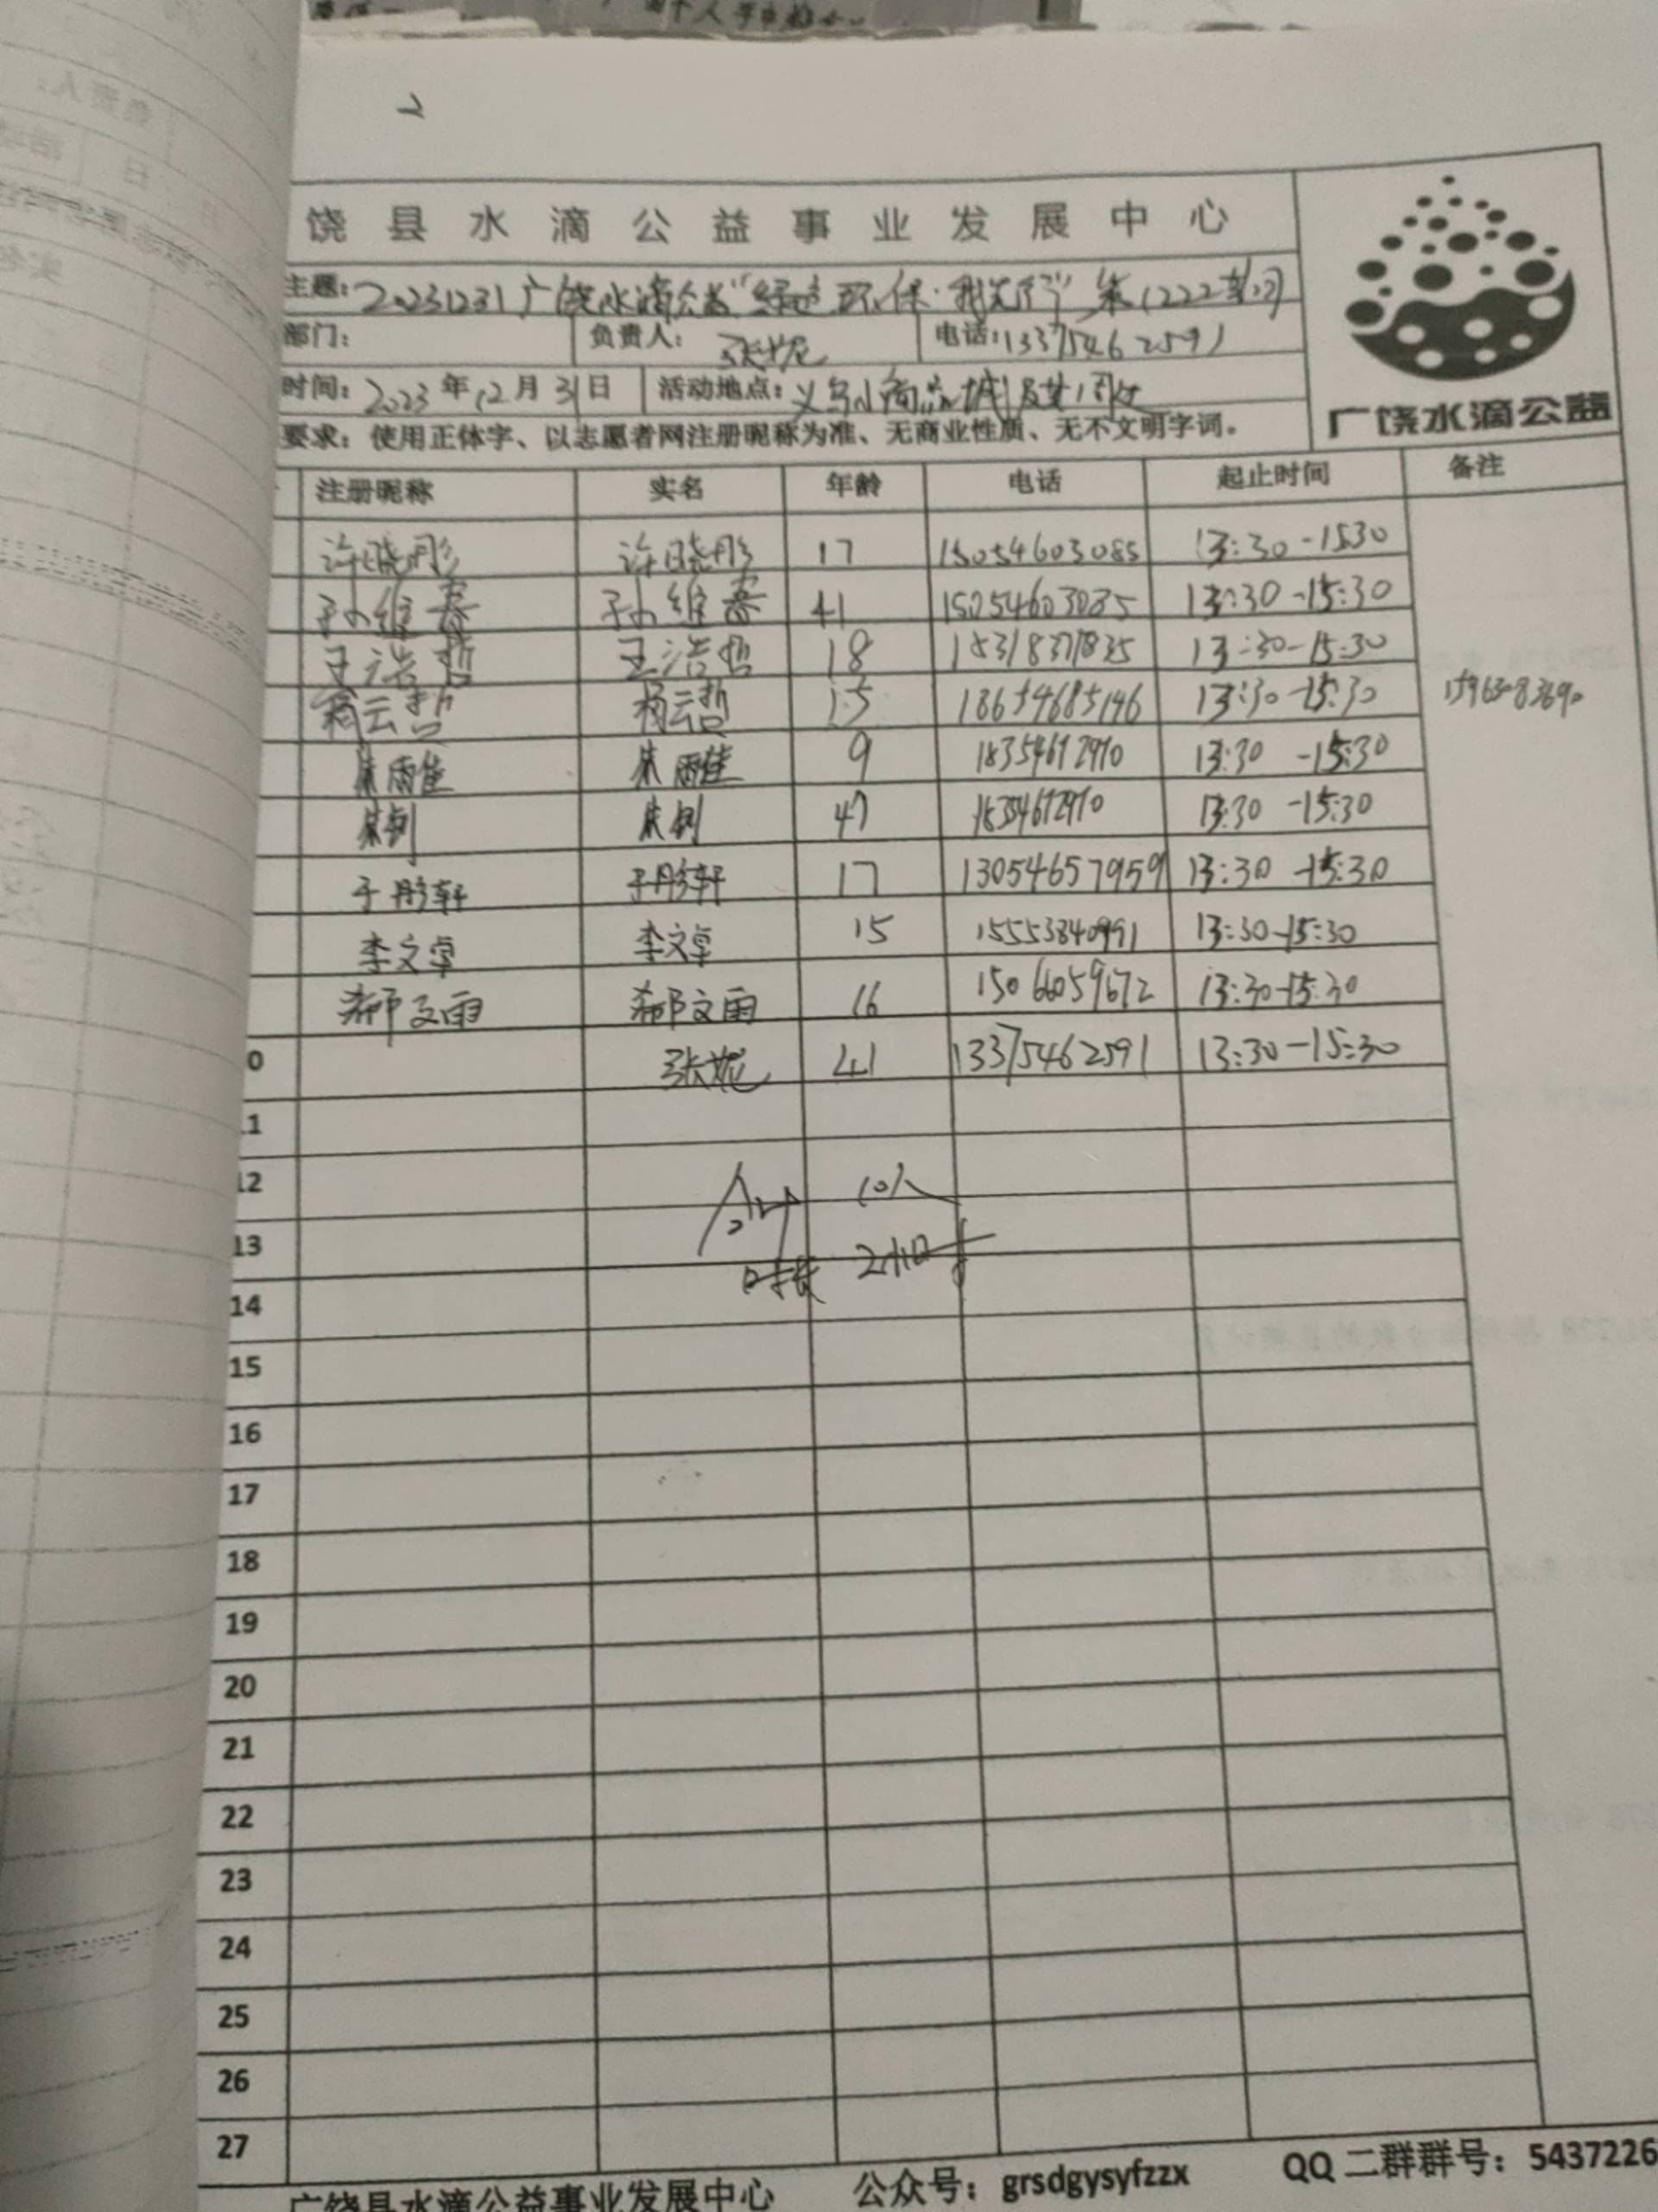 饶县水滴公益事业发展中心
主题：20231231广饶水滴公益“绿色环保·我先行”第1222期
部门： 负责人：张妮 电话：13375462591
时间：2023年12月31日 活动地点：义乌小商品城及其周边
要求：使用正体字、以志愿者网注册昵称为准、无商业性质、无不文明字词。
广饶水滴公益
注册昵称 实名 年龄 电话 起止时间 备注
许晓彤 许晓彤 17 15054603085 13:30-15:30
孙维 孙维 41 15054603085 13:30-15:30
王浩哲 王浩哲 18 13:30-15:30
杨云哲 杨云哲 15 18654685146 13:30-15:30
雨佳 雨佳 9 18354672970 13:30-15:30
47 18354672970 13:30-15:30
于彤轩 于彤轩 17 13054657959 13:30-15:30
李文卓 李文卓 15 15553840991 13:30-15:30
郗文雨 郗文雨 16 15066059672 13:30-15:30
0 张妮 41 13375462591 13:30-15:30
1
12 合计 10人
13 时长 2小时
14
15
16
17
18
19
20
21
22
23
24
25
26
27
广饶县水滴公益事业发展中心 公众号：grsdgysyfzzx QQ二群群号：5437226